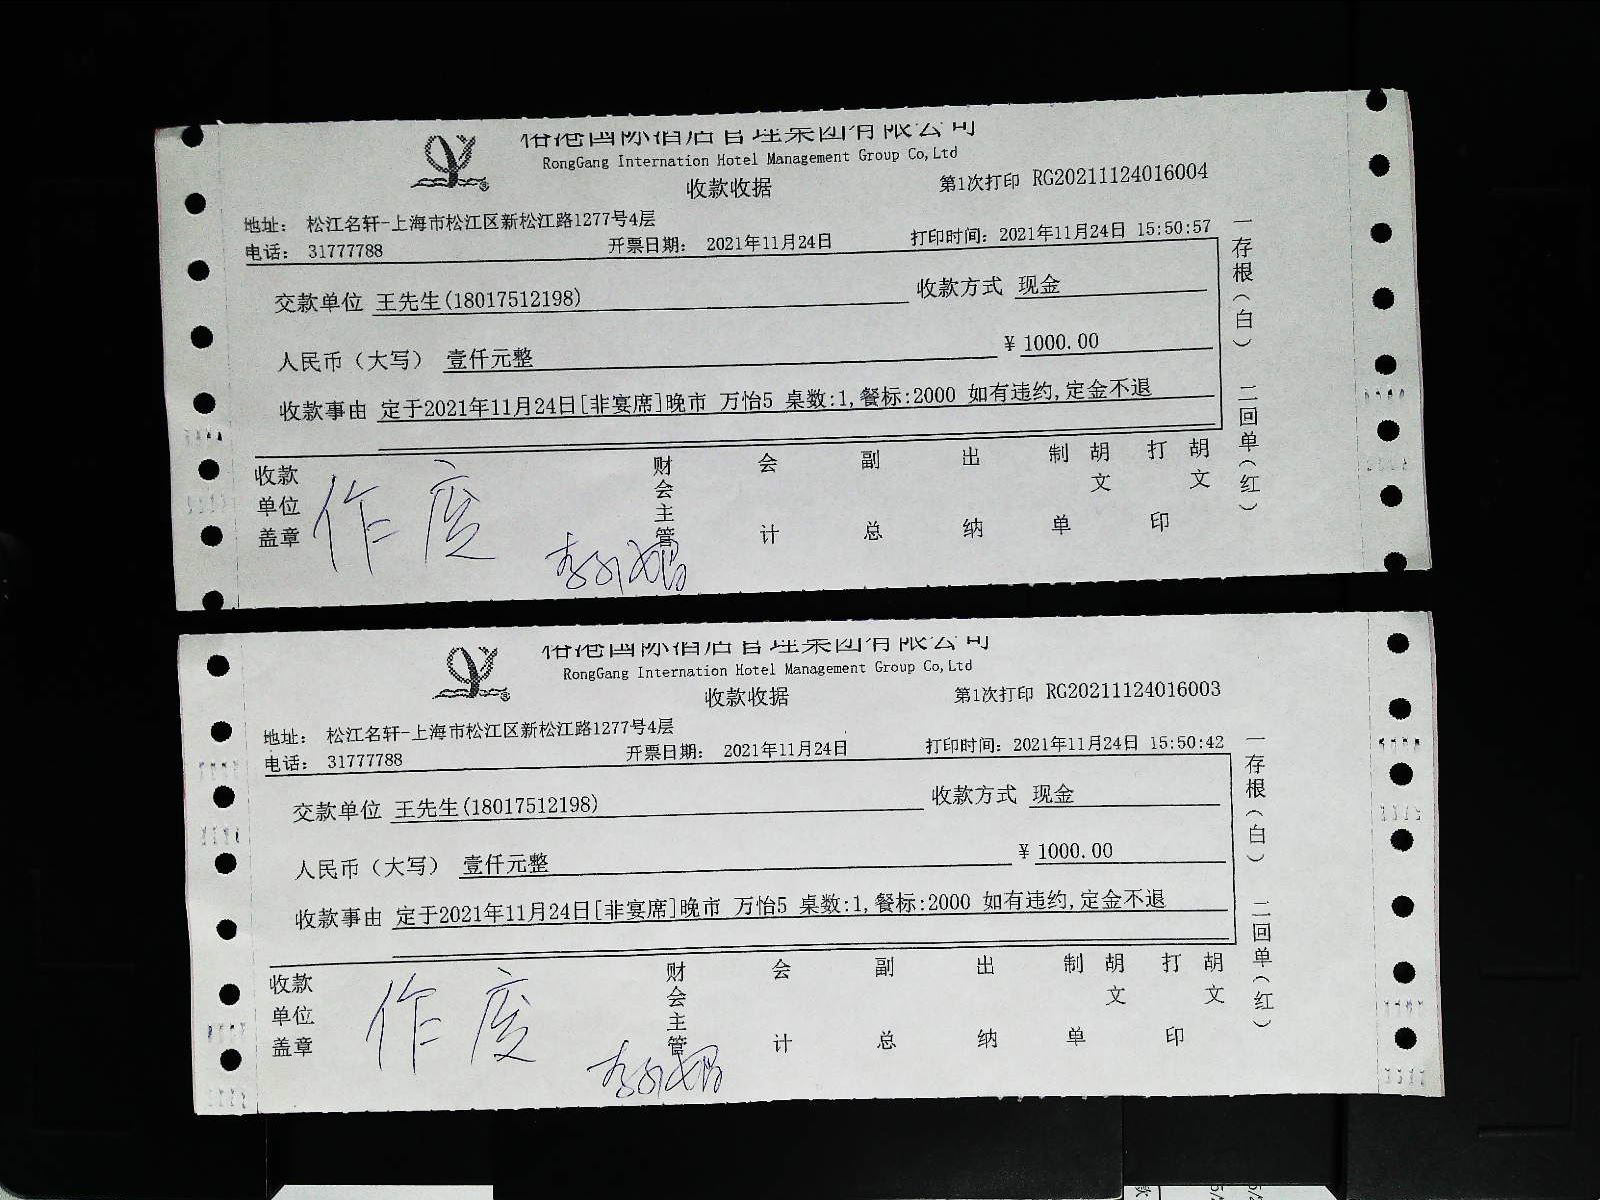 裕港国际酒店管理集团有限公司
RongGang Internation Hotel Management Group Co,Ltd
收款收据
第1次打印 RG20211124016004
地址： 松江名轩-上海市松江区新松江路1277号4层
电话： 31777788 开票日期： 2021年11月24日 打印时间：2021年11月24日 15:50:57
交款单位 王先生(18017512198) 收款方式 现金
人民币（大写） 壹仟元整 ¥ 1000.00
收款事由 定于2021年11月24日[非宴席]晚市 万怡5 桌数:1,餐标:2000 如有违约,定金不退
收款单位盖章 财会主管 会计 副总 出纳 制单 胡文 打印 胡文
作废
一存根（白） 二回单（红）
裕港国际酒店管理集团有限公司
RongGang Internation Hotel Management Group Co,Ltd
收款收据
第1次打印 RG20211124016003
地址： 松江名轩-上海市松江区新松江路1277号4层
电话： 31777788 开票日期： 2021年11月24日 打印时间：2021年11月24日 15:50:42
交款单位 王先生(18017512198) 收款方式 现金
人民币（大写） 壹仟元整 ¥ 1000.00
收款事由 定于2021年11月24日[非宴席]晚市 万怡5 桌数:1,餐标:2000 如有违约,定金不退
收款单位盖章 财会主管 会计 副总 出纳 制单 胡文 打印 胡文
作废
一存根（白） 二回单（红）